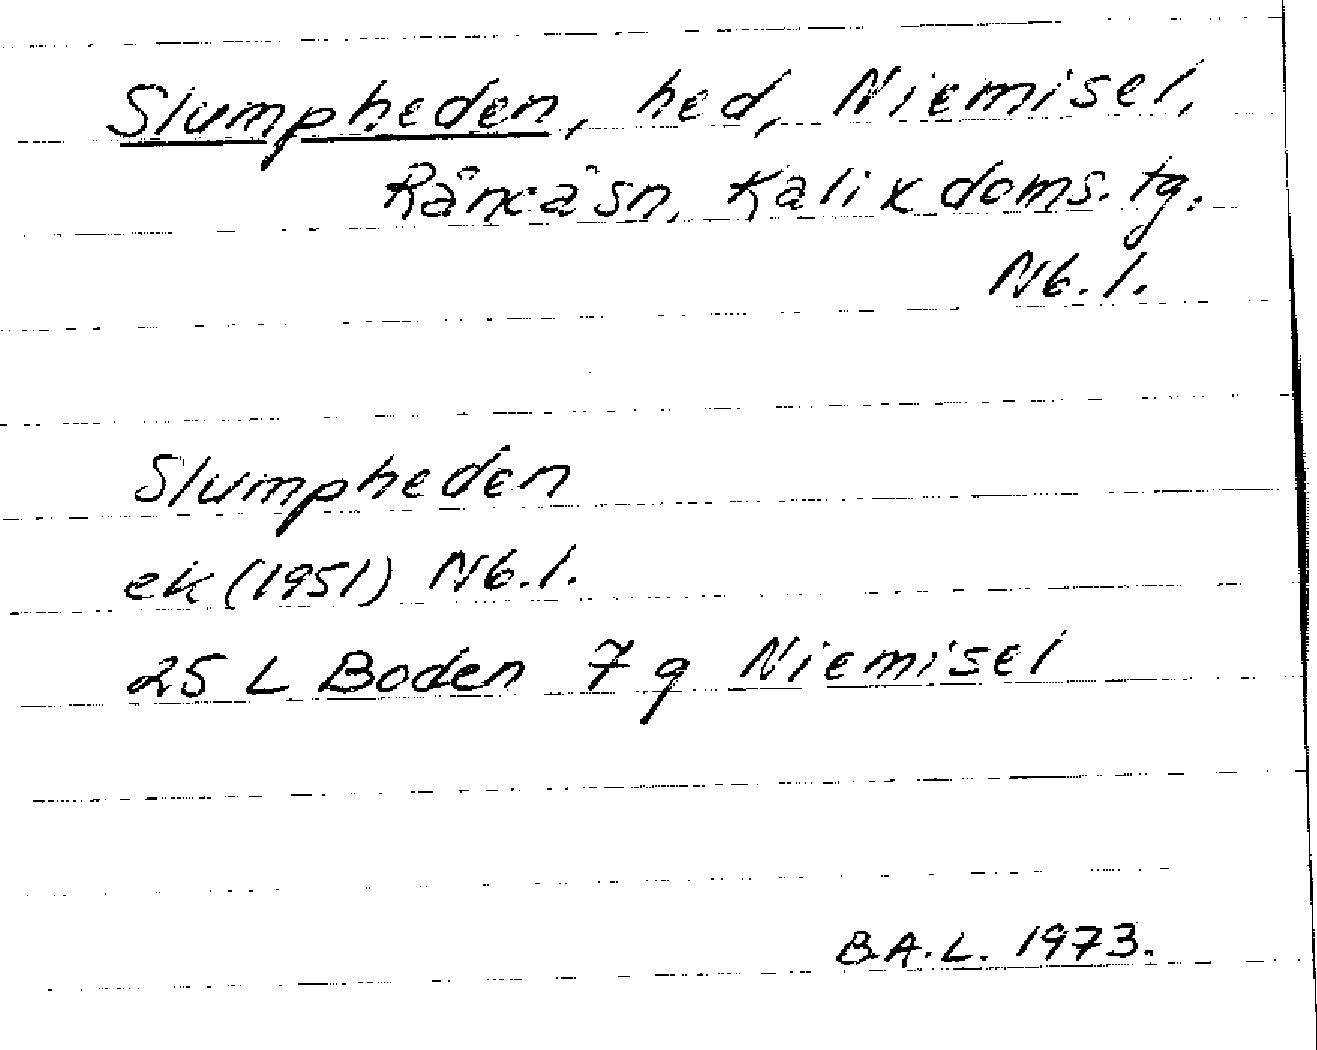 Slumpheden, hed, Niemisel,
Råneå sn, Kalix doms. tg.
Nb. l.
Slumpheden
ek (1951) Nb. l.
25 L Boden 7 g Niemisel
B.A.L. 1973.